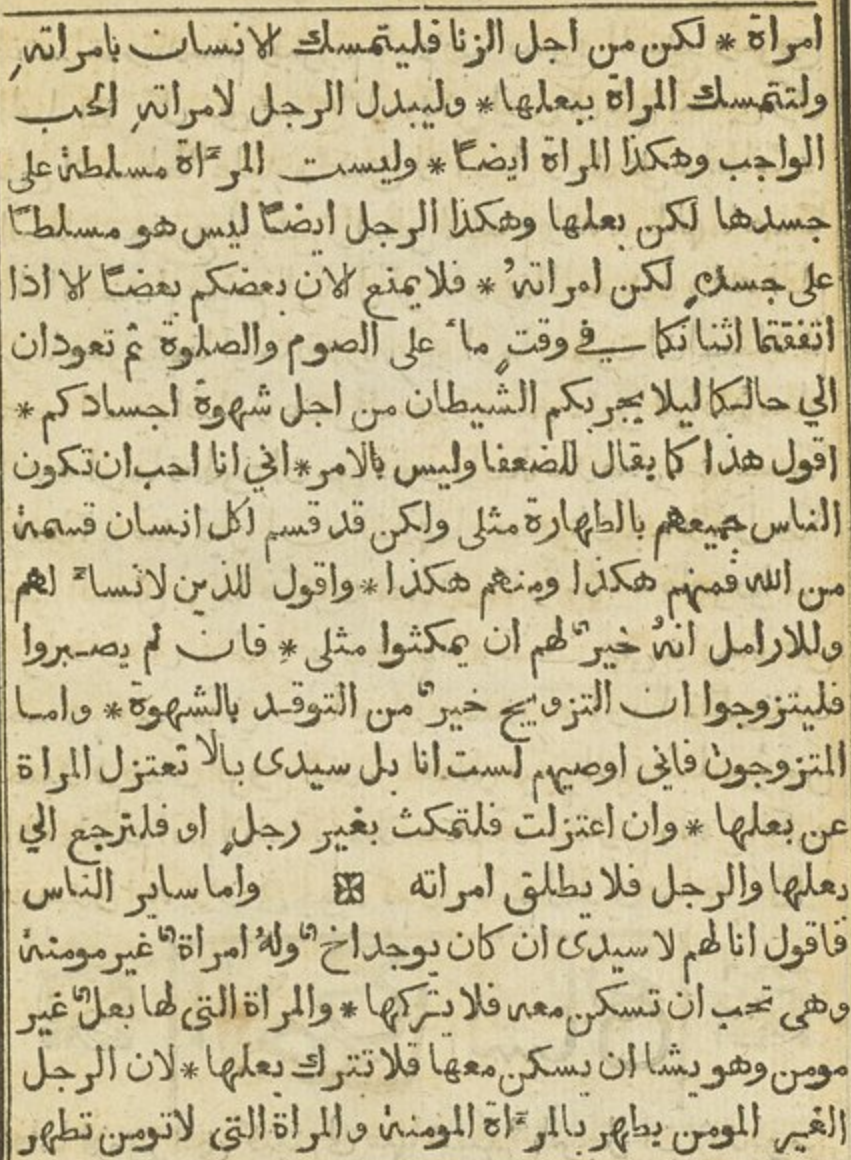 امراة * لكن من اجل الزنا فليتمسك الانسان بامراتهِ
ولتتمسك المراة ببعلها * وليبدل الرجل لامراتهِ الحب
الواجب وهكذا المراة ايضاً * وليست المرٓاة مسلطة على
جسدها لكن بعلها وهكذا الرجل ايضاً ليس هو مسلطاً
على جسدهِ لكن امراتهُ * فلا يمنع الان بعضكم بعضاً الا اذا
اتفقتما اثنانكما في وقتٍ ماء على الصوم والصلوة ثم تعودان
الي حالكما ليلا يجربكم الشيطان من اجل شهوة اجسادكم *
اقول هذا كما يقال للضعفا وليس بالامر * اني انا احب ان تكون
الناس جميعهم بالطهارة مثلى ولكن قد قسم لكل انسان قسمة
من الله فمنهم هكذا ومنهم هكذا * واقول للذين لا نساء لهم
وللارامل انهُ خيرٌ لهم ان يمكثوا مثلى * فان لم يصبروا
فليتزوجوا ان التزويج خيرٌ من التوقد بالشهوة * واما
المتزوجون فاني اوصيهم لست انا بل سيدى بالا تعتزل المراة
عن بعلها * وان اعتزلت فلتمكث بغير رجلٍ او فلترجع الي
بعلها والرجل فلا يطلق امراته واما ساير الناس
فاقول انا لهم لا سيدى ان كان يوجد اخٌ ولهُ امراةٌ غير مومنة
وهى تحب ان تسكن معه فلا يتركها * والمراة التى لها بعلٌ غير
مومن وهو يشا ان يسكن معها فلا تترك بعلها * لان الرجل
الغير المومن يطهر بالمرٓاة المومنة والمراة التى لا تومن تطهر